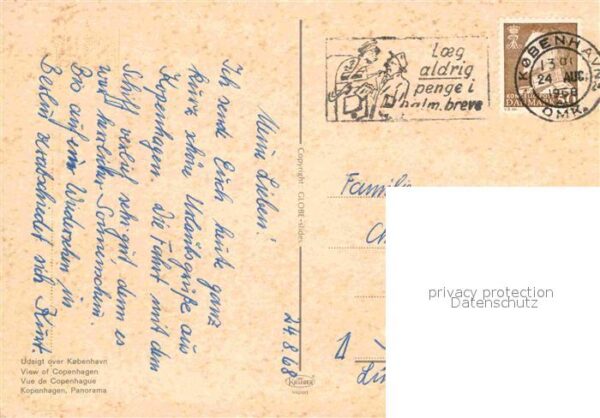 Meine Lieben!
Ich sende Euch heute ganz
kurz schöne Urlaubsgrüße aus
Kopenhagen. Die Fahrt mit dem
Schiff verlief sehr gut denn es
war herrlicher Sonnenschein.
Bis auf ein Wiedersehen in
Berlin verabschiedet sich Kurt.
24.8.68
Udsigt over København
View of Copenhagen
Vue de Copenhague
Kopenhagen, Panorama
Copyright: GLOBE-slides
læg
aldrig
penge i
alm. breve
KØBENHAVN
24 AUG.
1968
OMK.
DANMARK
Familie
1
privacy protection
Datenschutz